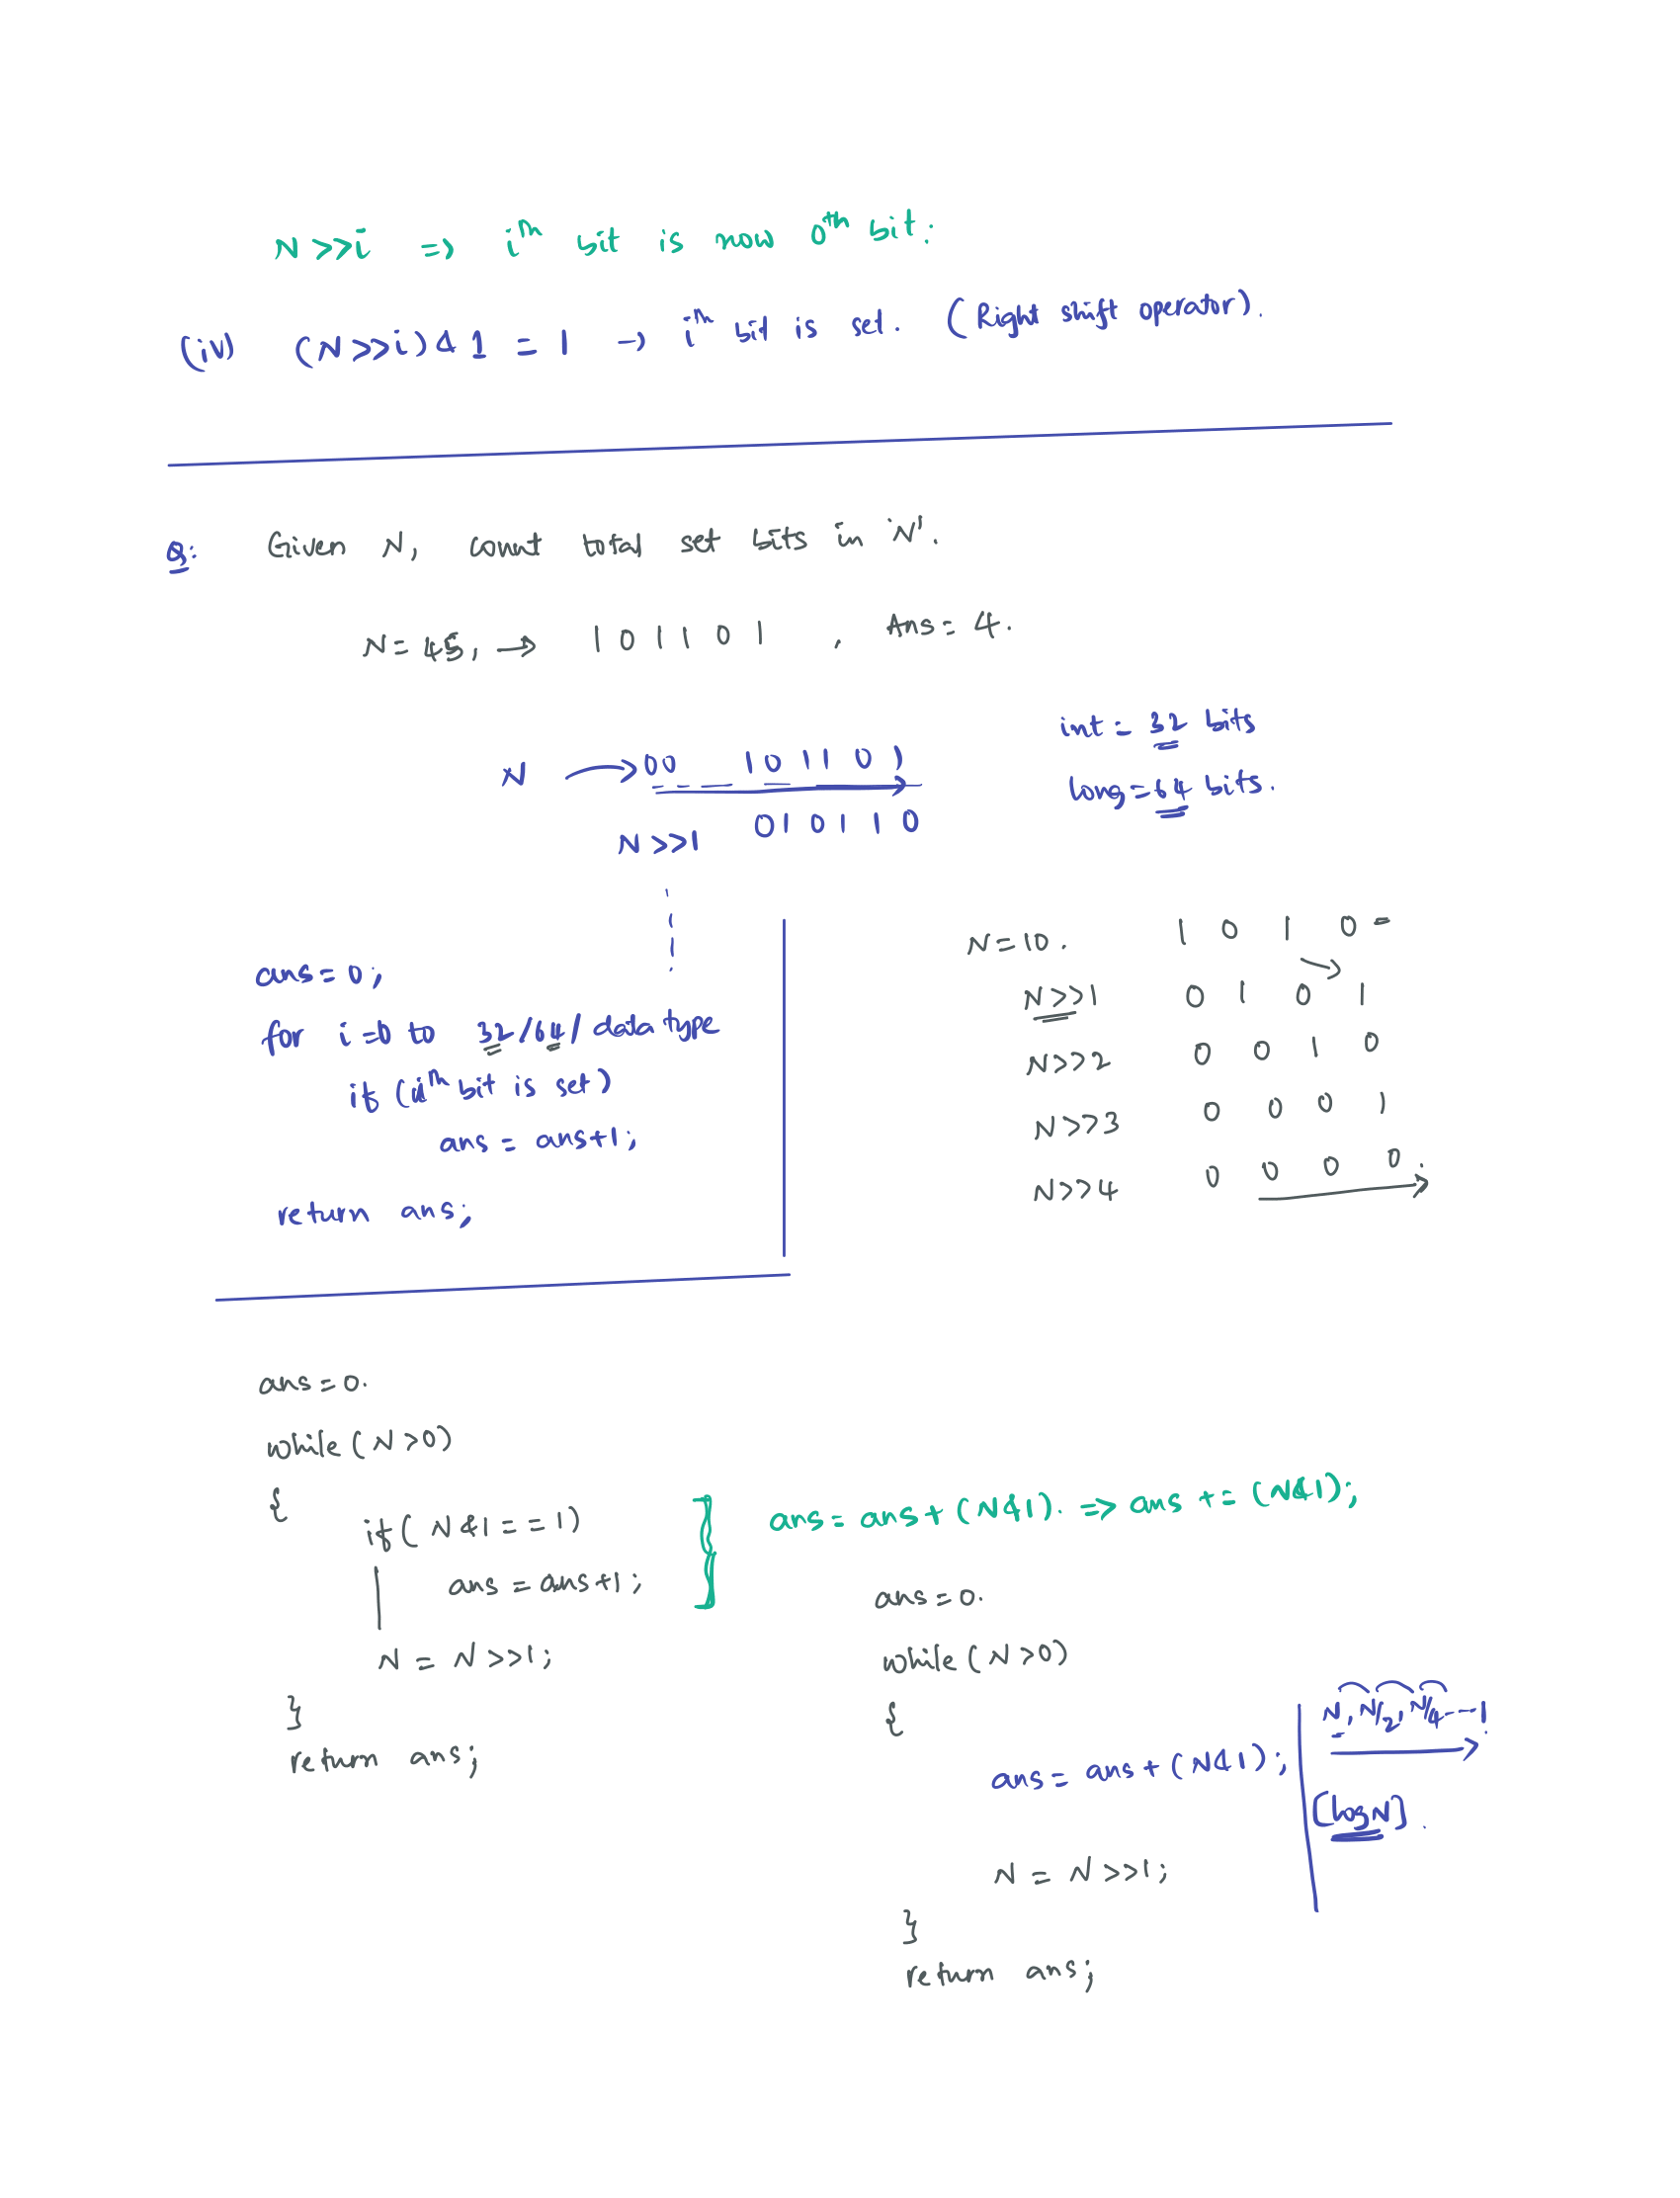 N >>i => ith bit is now 0th bit.
(iv) (N>>i) & 1 = 1 → ith bit is set. (Right shift operator).
Q: Given N, count total set bits in 'N'.
N = 45, → 1 0 1 1 0 1 , Ans = 4.
int = 32 bits
N → 00 _ _ 1 0 1 1 0 1
long = 64 bits.
N >>1 0 1 0 1 1 0
ans = 0;
for i = 0 to 32/64/ data type
if (ith bit is set)
ans = ans+1;
return ans;
N = 10. 1 0 1 0 =
N>>1 0 1 0 1
N>>2 0 0 1 0
N>>3 0 0 0 1
N>>4 0 0 0 0.
ans = 0.
while (N >0)
{
if ( N &1 = = 1)
ans = ans+1;
N = N >>1;
}
return ans;
ans = ans + (N&1). => ans += (N&1);
ans = 0.
while (N >0)
{
ans = ans + (N&1);
N = N >>1;
}
return ans;
N, N/2, N/4 - - - 1.
[log N].